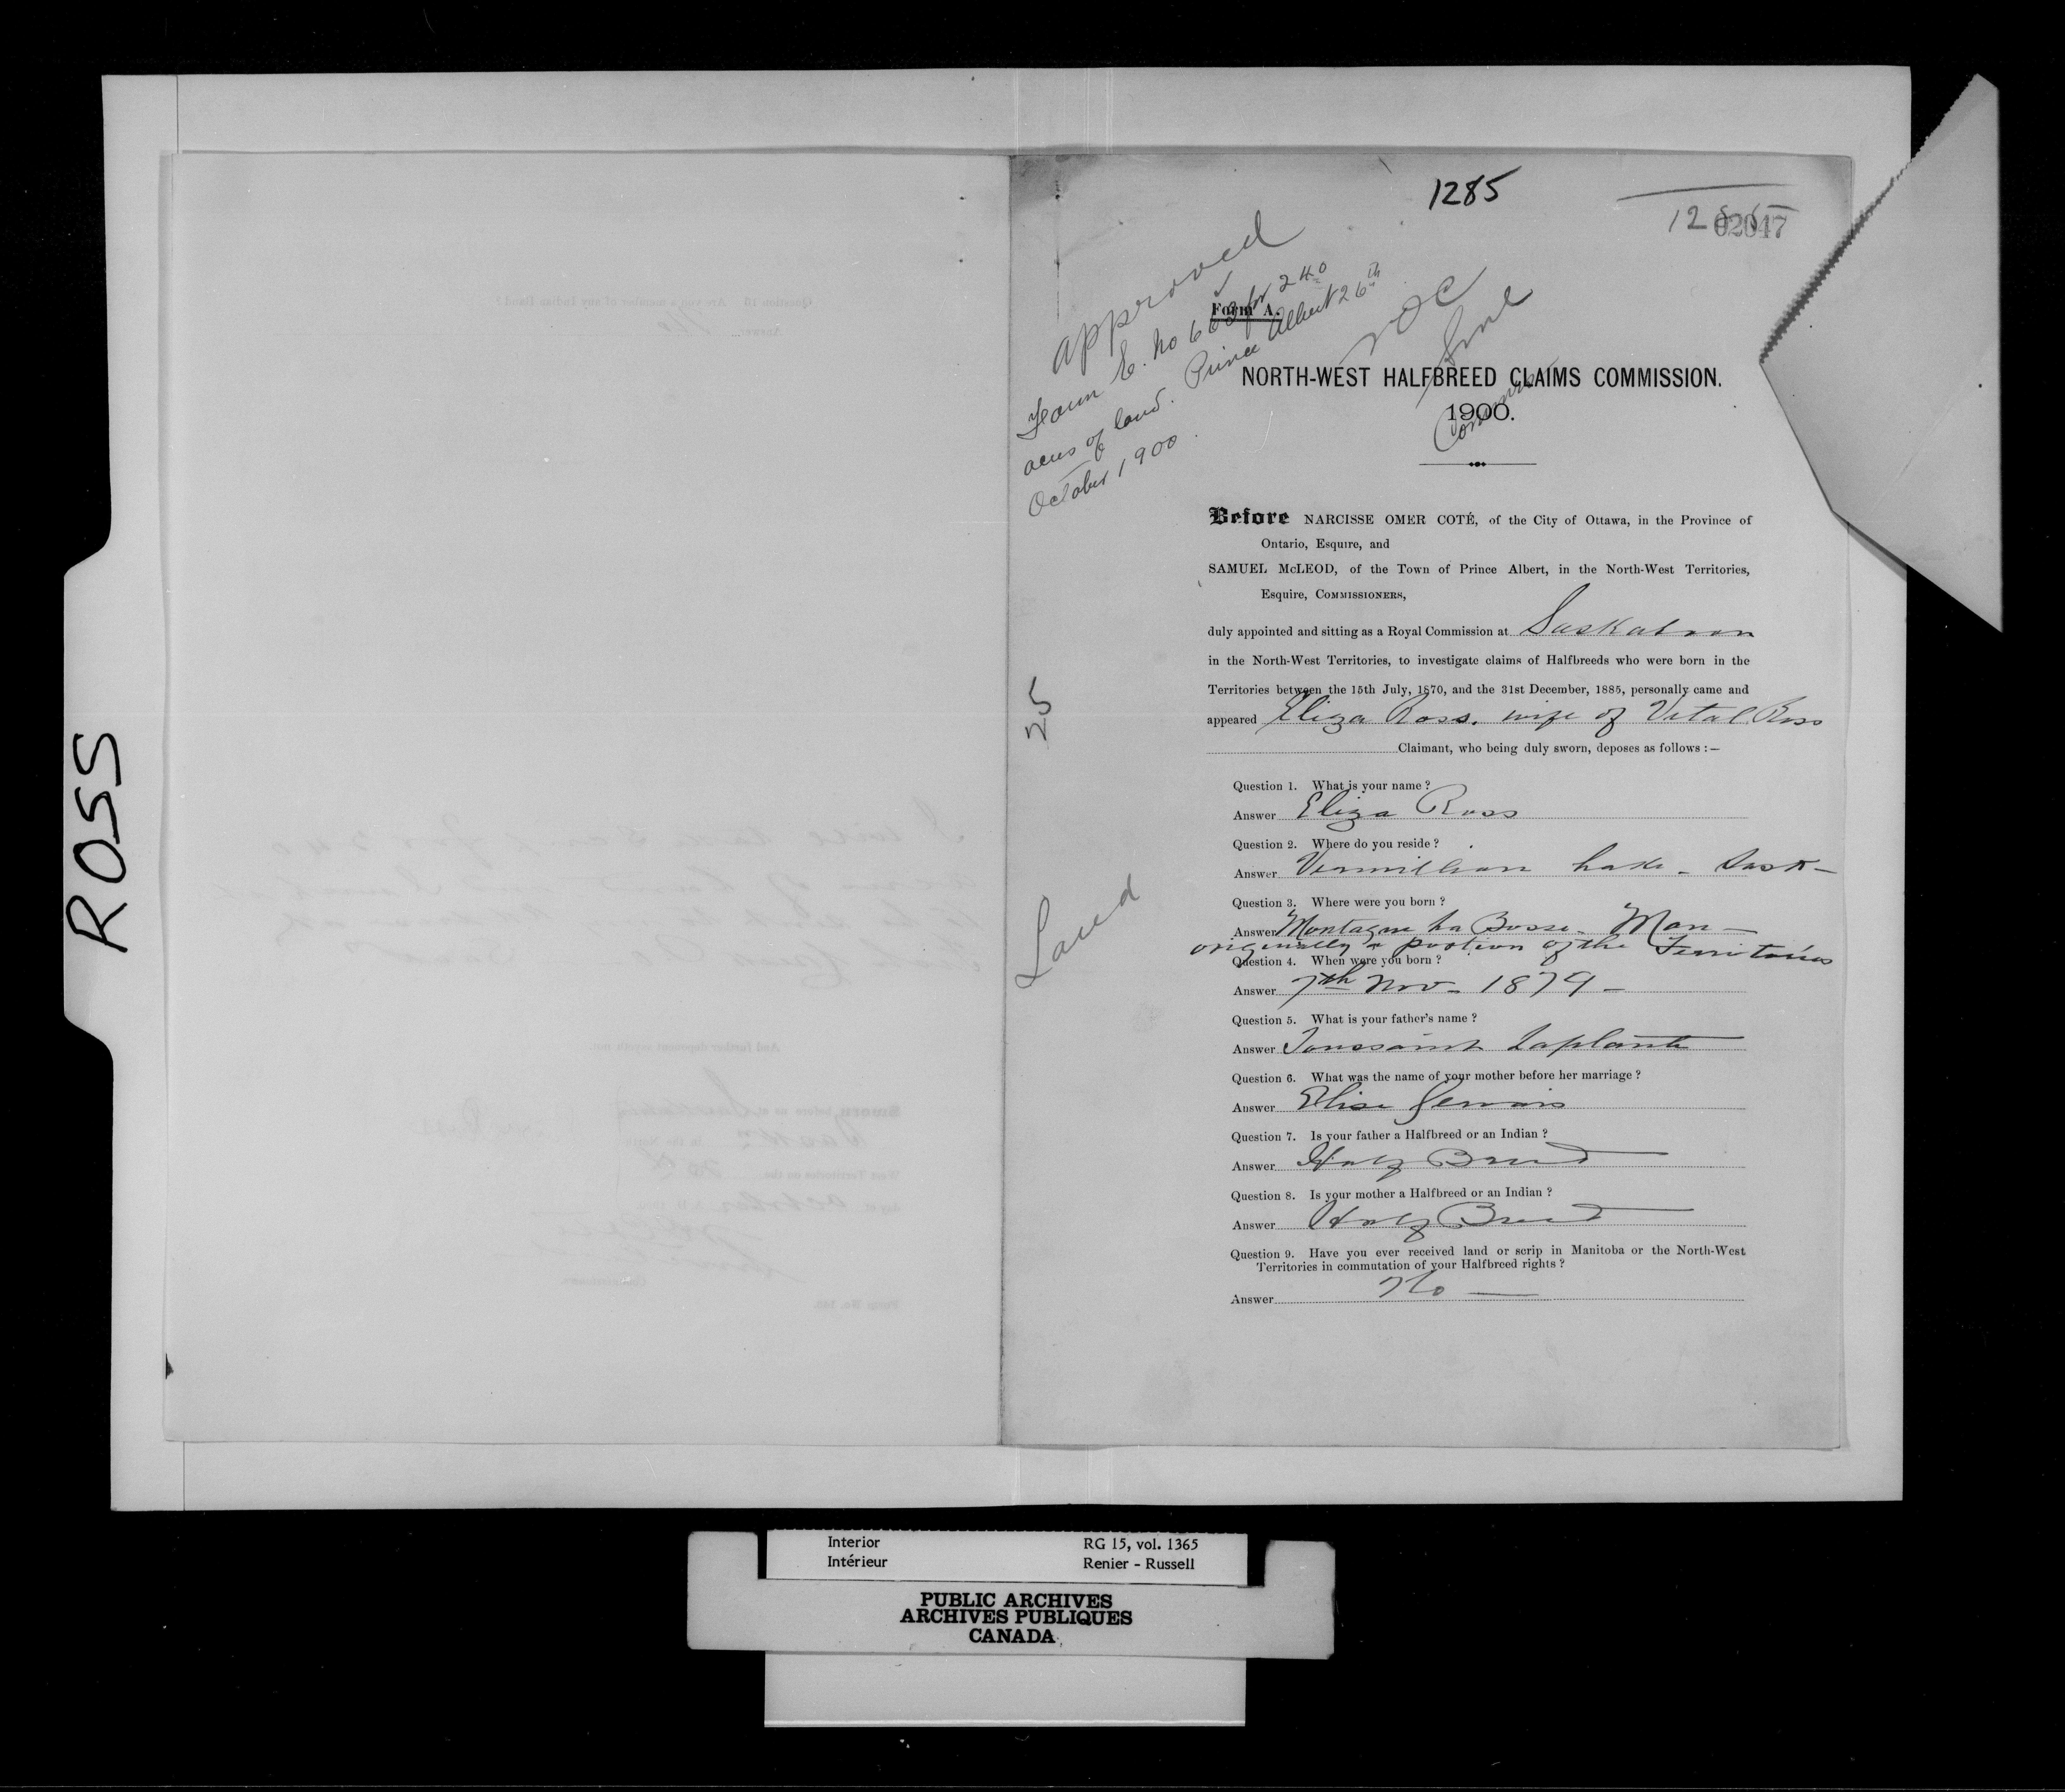 ROSS
1285
1285
02047
approved
Form E. No 663 for 240
acres of land. Prince Albert 26th
October 1900.
NOC
Comm
25
Land
Form A.
NORTH-WEST HALFBREED CLAIMS COMMISSION.
1900.
Before NARCISSE OMER COTÉ, of the City of Ottawa, in the Province of
Ontario, Esquire, and
SAMUEL McLEOD, of the Town of Prince Albert, in the North-West Territories,
Esquire, COMMISSIONERS,
duly appointed and sitting as a Royal Commission at Saskatoon
in the North-West Territories, to investigate claims of Halfbreeds who were born in the
Territories between the 15th July, 1870, and the 31st December, 1885, personally came and
appeared Eliza Ross. wife of Vital Ross
Claimant, who being duly sworn, deposes as follows :—
Question 1. What is your name ?
Answer Eliza Ross
Question 2. Where do you reside ?
Answer Vermillion Lake - Sask -
Question 3. Where were you born ?
Answer Montagne La Bosse. Man -
originally a portion of the Territories
Question 4. When were you born ?
Answer 7th Nov - 1879 -
Question 5. What is your father's name ?
Answer Toussaint Laplante
Question 6. What was the name of your mother before her marriage ?
Answer Elise Gervais
Question 7. Is your father a Halfbreed or an Indian ?
Answer Half Breed
Question 8. Is your mother a Halfbreed or an Indian ?
Answer Half Breed
Question 9. Have you ever received land or scrip in Manitoba or the North-West
Territories in commutation of your Halfbreed rights ?
Answer No —
Interior RG 15, vol. 1365
Intérieur Renier - Russell
PUBLIC ARCHIVES
ARCHIVES PUBLIQUES
CANADA